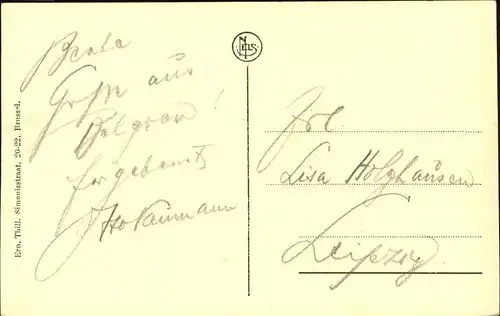 Ern. Thill. Simonisstraat. 20-22. Brussel.
NELS
Beste
Grüße aus
Belgien!
Ergebenst
Frl.
Lisa Holzhausen
Leipzig